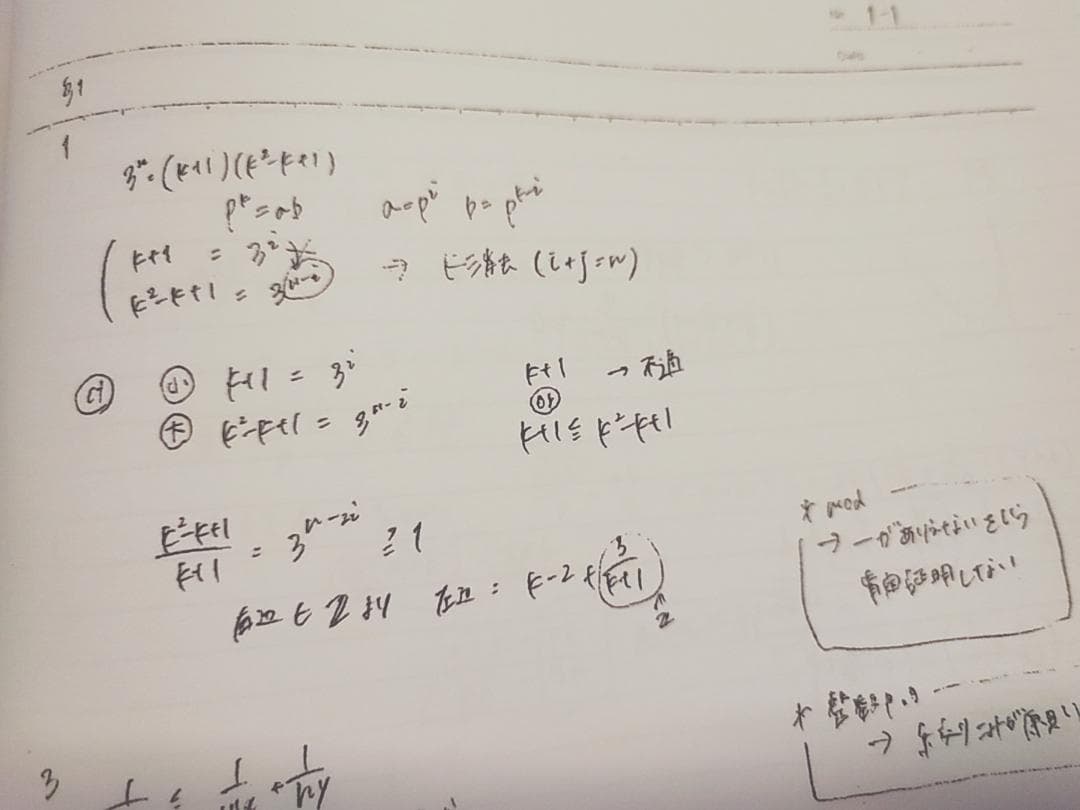 No. 1-1
DATE
§1
1
3ⁿ = (k+1)(k²-k+1)
pᵏ = ab a=pⁱ b=pᵏ⁻ⁱ
k+1 = 3ⁱ
k²-k+1 = 3ⁿ⁻ⁱ → kを消去 (i+j=n)
小 k+1 = 3ⁱ k+1 →
大 k²-k+1 = 3ⁿ⁻ⁱ k+1 ≦ k²-k+1
(k²-k+1)/(k+1) = 3ⁿ⁻²ⁱ ≧ 1
右辺 ∈ Z より 左辺 = k-2 + 3/(k+1)
Z
* mod
→ 一がありえないを
証明しない
* 整数p.q
→
3
1/ ≤ 1/ + 1/ny